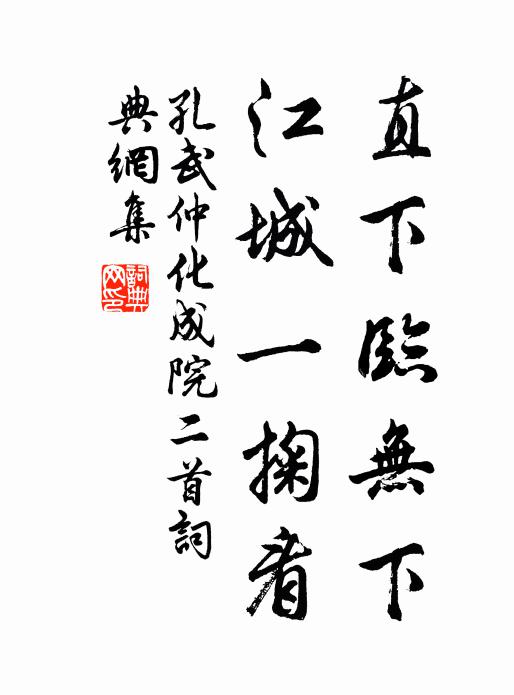 直下臨無下
江城一掬看
孔武仲化成院二首詞
典網集
詞典网印